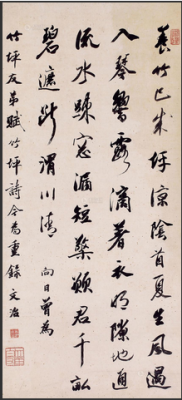 養竹已成坪涼陰首夏生風過
入琴響露滴著衣明隙地通
流水疎窓漏短檠願君千畝
碧遮此渭川清 向日曾為
竹坪友弟賦竹坪詩今為重錄 文治